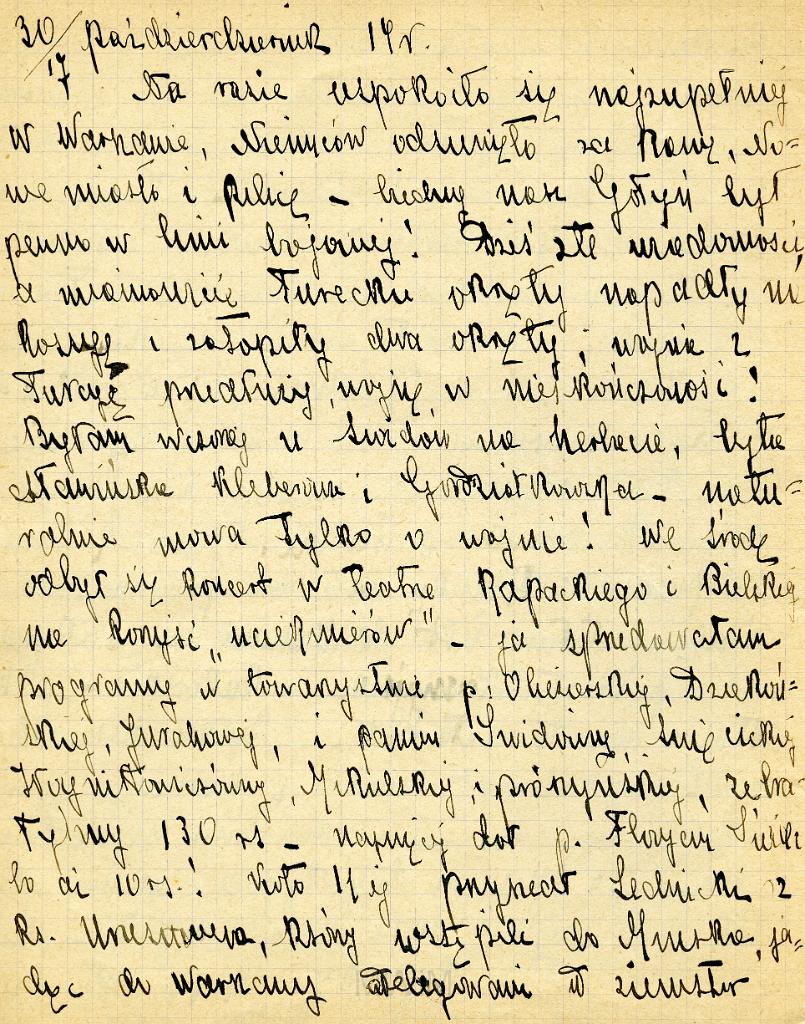 30/17 październik 14 r.
Na razie uspokoiło się najzupełniej
w Warszawie, Niemców odsunięto za Rawę, No=
we miasto i Pilicę – biedny nasz Gołyń był
pewno w linii bojowej! Dziś złe wiadomości,
a mianowicie Tureckie okręty napadły na
Rossyę i zatopiły dwa okręty; wojna z
Turcyą przedłuży wojnę w nieskończoność!
Byłam wczoraj u Świdów na herbacie, była
Kleberowa i – natu=
ralnie mowa tylko o wojnie! We środę
odbył się koncert w teatrze Rapackiego i Bielskiej
na korzyść „uciekinierów" – ja sprzedawałam
programy w towarzystwie p. Olizerskiej, Dziekoń=
skiej, Jurahowej, i panien Świdówny, Święcickiej
Mikulskiej i Prószyńskiej, zebra=
łyśmy 130 rs – najwięcej dał p. Floryan
bo aż 10 rs.! Koło 11 ej przyszedł Lednicki z
ks. którzy wstąpili do Mińska, ja=
dąc do Warszawy delegowani od ziemstw